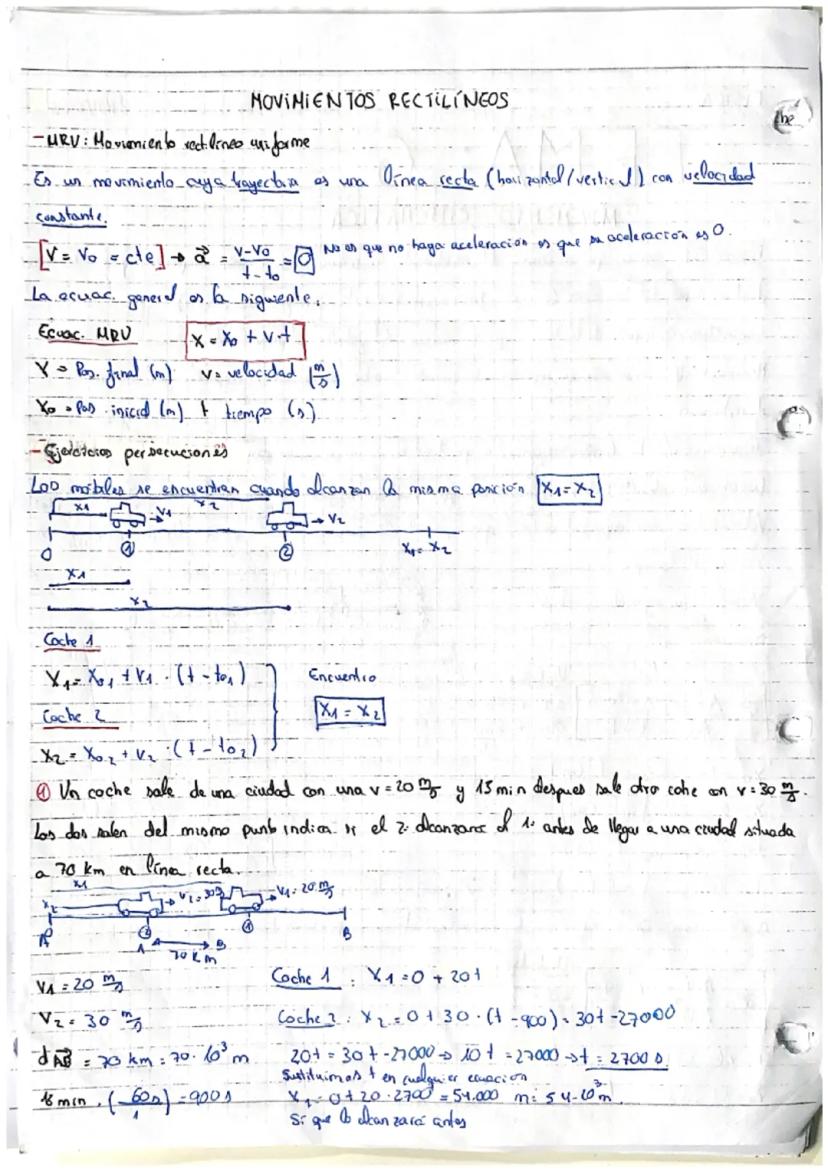 MOVIMIENTOS RECTILÍNEOS
- MRU: Movimiento rectilíneo uniforme
Es un movimiento cuya trayectoria es una línea recta (horizontal/vertical) con velocidad
constante.
[V = V₀ = cte] → a⃗ = V-V₀ / t-t₀ = 0 No es que no haya aceleración es que su aceleración es 0.
La ecuac. general es la siguiente.
Ecuac. MRU X = X₀ + V·t
X = Pos. final (m) V = velocidad (m/s)
X₀ = Pos inicial (m) t tiempo (s)
- Ejercicios persecuciones
Los móbiles se encuentran cuando alcanzan la misma posición X₁=X₂
X₁ V₁ X₂ V₂
0 ① ② X₁ = X₂
X₁
X₂
Coche 1
X₁ = X₀₁ + V₁ · (t - t₀₁) Encuentro
Coche 2 X₁ = X₂
X₂ = X₀₂ + V₂ · (t - t₀₂)
① Un coche sale de una ciudad con una v = 20 m/s y 15 min despues sale otro cohe con v = 30 m/s.
Los dos salen del mismo punto indica si el 2º alcanzara al 1º antes de llegar a una ciudad situada
a 70 km en línea recta.
X₁
X₂ V₂ = 30 m/s V₁ = 20 m/s
A ② ① B
A B
70 Km
V₁ = 20 m/s Coche 1 : X₁ = 0 + 20t
V₂ = 30 m/s Coche 2 : X₂ = 0 + 30 · (t - 900) = 30t - 27000
dAB = 70 km = 70·10³ m 20t = 30t - 27000 → 10t = 27000 → t = 2700 s.
Sustituimos t en cualquier ecuación
15 min · (60s / 1) = 900s X₁ = 0 + 20·2700 = 54.000 m = 54·10³ m.
Si que lo alcanzará antes